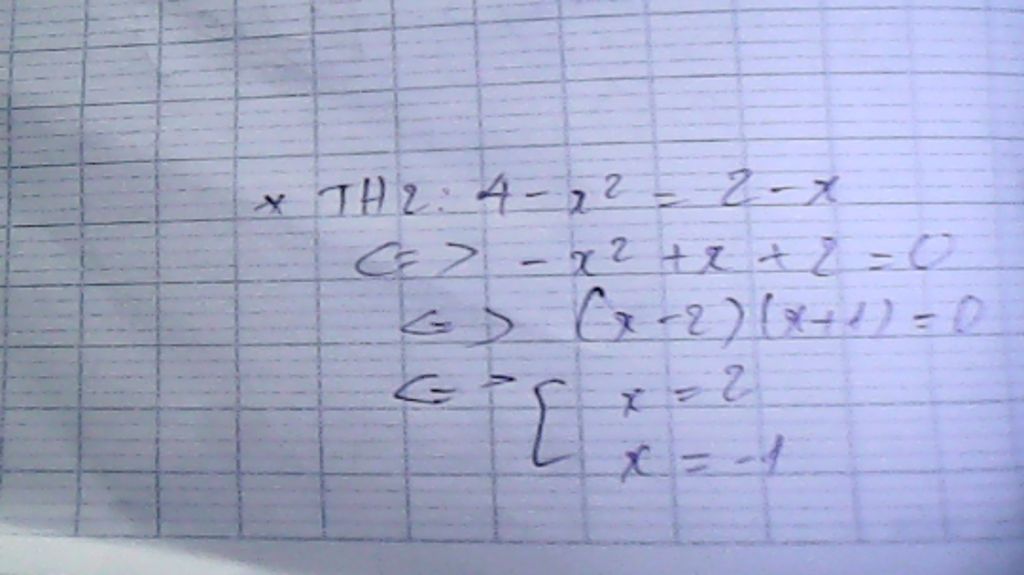 * TH2: 4 - x² = 2 - x
<=> - x² + x + 2 = 0
<=> (x - 2)(x + 1) = 0
<=> [ x = 2
x = -1